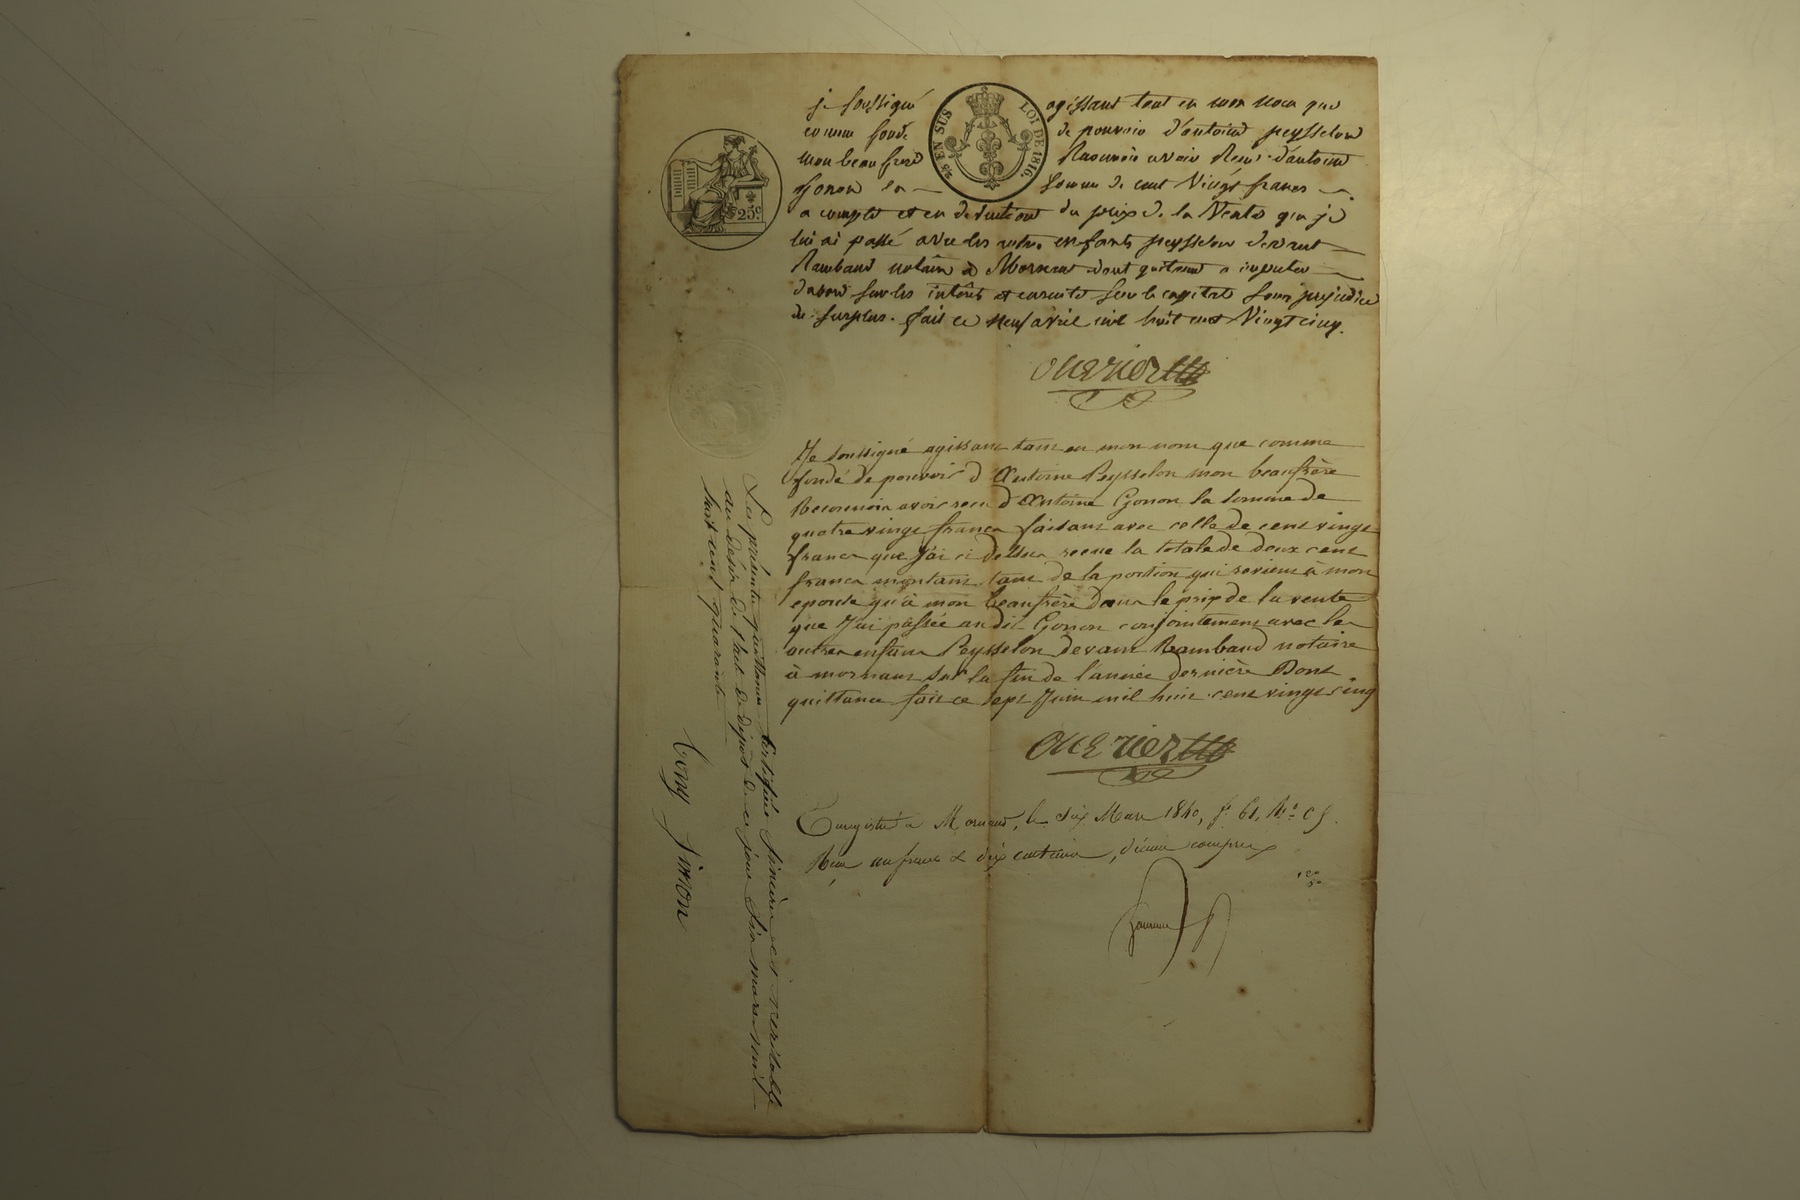 je soussigné agissant tant en mon nom que
comme fondé de pouvoir d'antoine peysselon
mon beau frere Reconnois avoir Reçu d'antoine
gonon la somme de cent Vingt francs
a compte et en deduction du prix de la Vente que je
lui ai passé avec les autres enfants peysselon devant
Rambaud notaire a Mornant dont quittance a imputer
dabord sur les intérêts et ensuite sur le capital sans prejudice
du surplus. fait ce neuf avril mil huit cent Vingt cinq.
25 EN SUS LOI DE 1816.
25c.
ouvrier
Je soussigné agissant tant en mon nom que comme
fondé de pouvoir d'Antoine Peysselon mon beaufrère
Reconnoir avoir recu d'Antoine Gonon la somme de
quatre vingt francs faisant avec celle de cent vingt
francs que J'ai ci dessus recue la totale de deux cent
francs montant tant de la portion qui revient à mon
epouse qu'à mon beaufrère dans le prix de la vente
que J'ai passée au dit Gonon conjointement avec les
autres enfans Peysselon devant Rambaud notaire
à mornant sur la fin de l'année dernière Dont
quittance fait ce sept Juin mil huit cent vingt cinq
ouvrier
Enregistré a Mornant, le dix Mars 1840, f° 61, R° c 5.
Reçu un franc & dix centimes, décime compris
La présente quittance certifiée sincère et véritable
au désir de l'acte de dépôt de ce jour Six mars mil
huit cent quarante
Simon